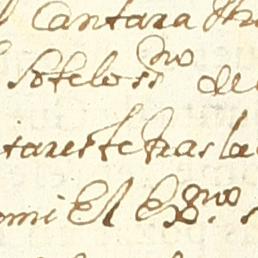 Cantara
Sotelo ss.no de
tar este tras la
omi El Ex.mo s